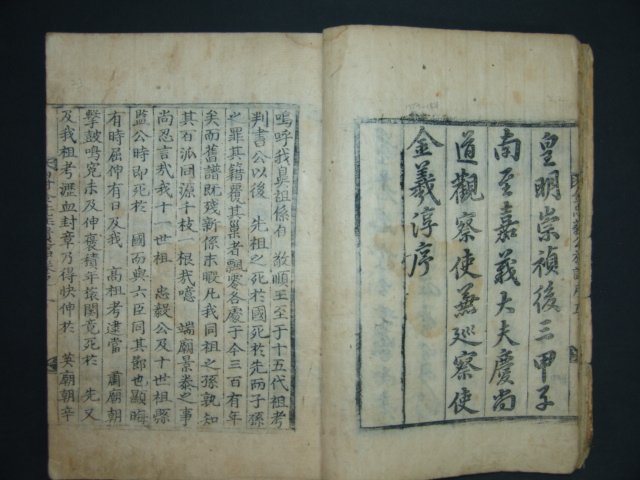 皇明崇禎後三甲子
南至嘉義大夫慶尚
道觀察使兼巡察使
金羲淳序
嗚呼我鼻祖係自 敬順王至于十五代祖考
判書公以後 先祖之死於國死於先而子孫
之罪其籍覆其巢者飄零各處于今三百有年
矣而舊譜旣殘新係未暇凡我同祖之孫孰知
其百派同源千枝一根我噫 端廟景泰之事
尚忍言哉我十一世祖 忠毅公及十世祖縣
監公時卽死於 國而與六臣同其節也顯晦
有時屈伸有日及我 高祖考建當 肅廟朝
擊皷鳴寃未及伸褒積年抜閣竟死於 先又
及我祖考瀝血封章乃得快伸於 英廟朝辛